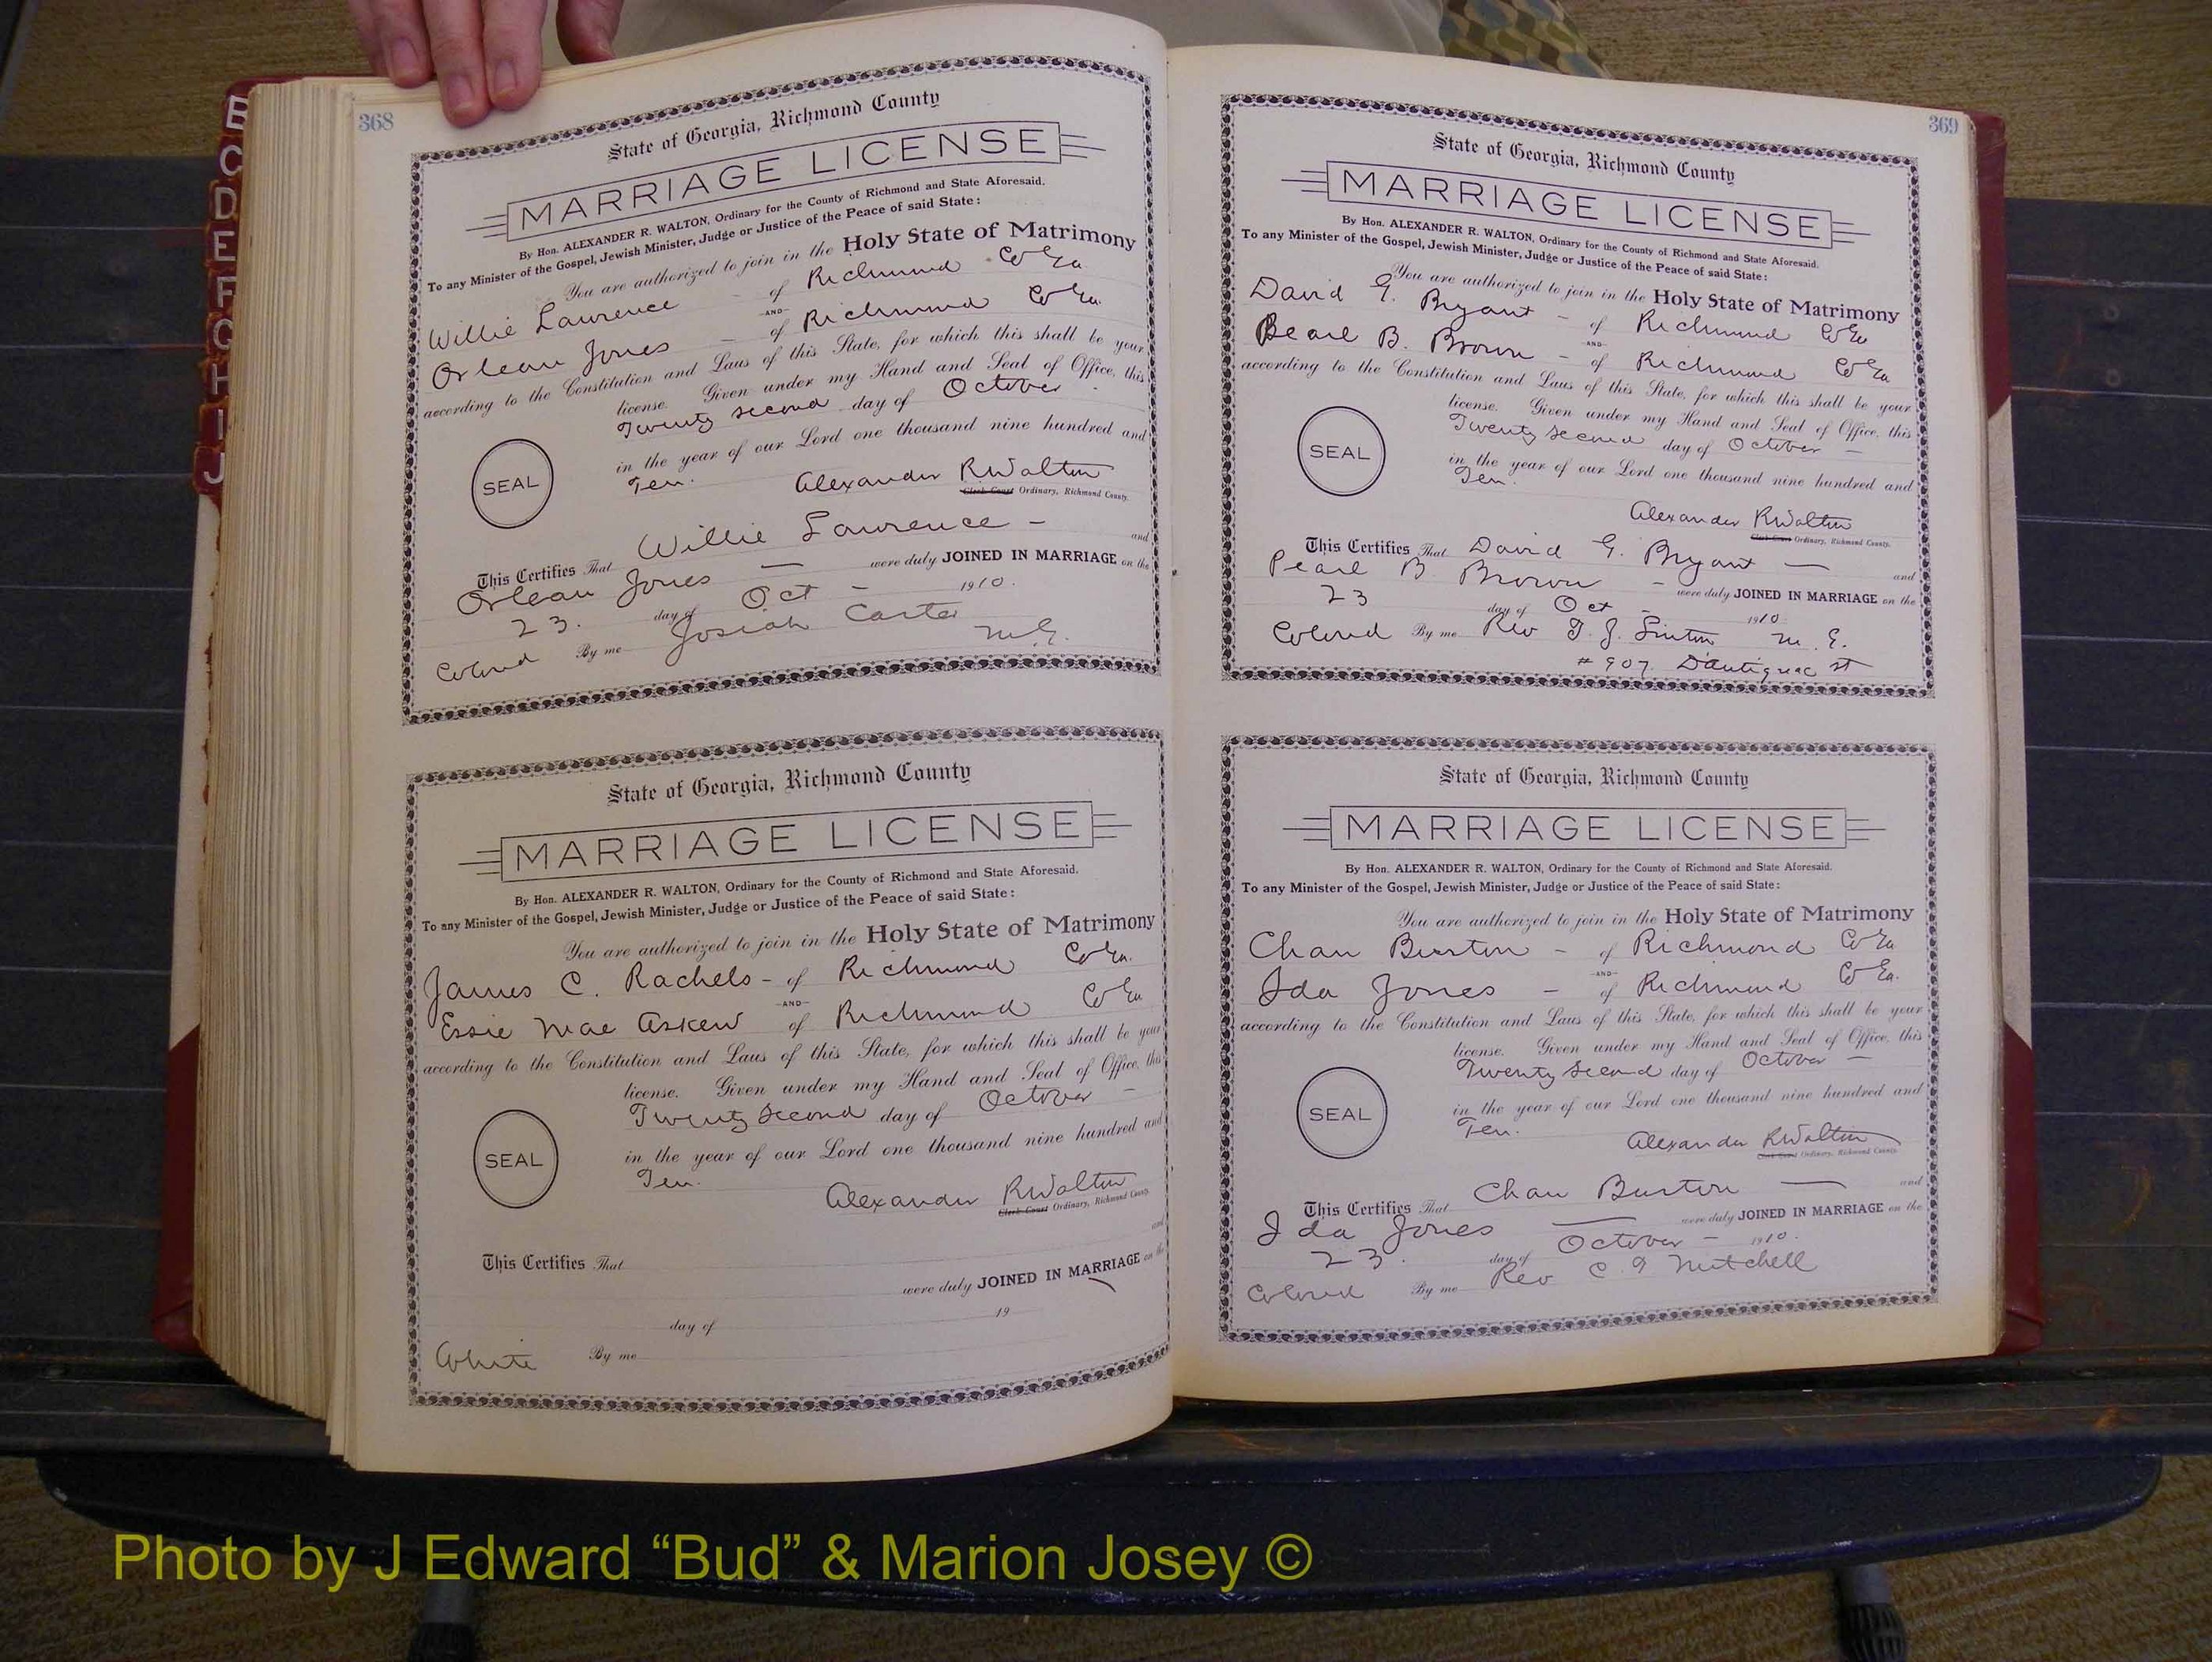 B
C
D
E
F
G
H
I
J
368
State of Georgia, Richmond County
MARRIAGE LICENSE
By Hon. ALEXANDER R. WALTON, Ordinary for the County of Richmond and State Aforesaid.
To any Minister of the Gospel, Jewish Minister, Judge or Justice of the Peace of said State:
You are authorized to join in the Holy State of Matrimony
Willie Lawrence - of Richmond Co Ga
-AND-
Orlean Jones - of Richmond Co Ga.
according to the Constitution and Laws of this State, for which this shall be your
license. Given under my Hand and Seal of Office, this
Twenty second day of October
in the year of our Lord one thousand nine hundred and
Ten.
SEAL
Alexander R Walton
Clerk Court Ordinary, Richmond County.
This Certifies That Willie Lawrence - and
Orlean Jones - were duly JOINED IN MARRIAGE on the
23. day of Oct - 1910.
Colored By me Josiah Carter M.G.
State of Georgia, Richmond County
MARRIAGE LICENSE
By Hon. ALEXANDER R. WALTON, Ordinary for the County of Richmond and State Aforesaid.
To any Minister of the Gospel, Jewish Minister, Judge or Justice of the Peace of said State:
You are authorized to join in the Holy State of Matrimony
James C. Rachels - of Richmond Co Ga.
-AND-
Essie Mae Askew of Richmond Co Ga
according to the Constitution and Laws of this State, for which this shall be your
license. Given under my Hand and Seal of Office, this
Twenty Second day of October -
in the year of our Lord one thousand nine hundred and
Ten.
SEAL
Alexander R Walton
Clerk Court Ordinary, Richmond County.
and
This Certifies That
were duly JOINED IN MARRIAGE on the
day of 19
White By me
369
State of Georgia, Richmond County
MARRIAGE LICENSE
By Hon. ALEXANDER R. WALTON, Ordinary for the County of Richmond and State Aforesaid.
To any Minister of the Gospel, Jewish Minister, Judge or Justice of the Peace of said State:
You are authorized to join in the Holy State of Matrimony
David G. Bryant - of Richmond Co Ga
-AND-
Pearl B. Brown - of Richmond Co Ga
according to the Constitution and Laws of this State, for which this shall be your
license. Given under my Hand and Seal of Office, this
Twenty second day of October -
in the year of our Lord one thousand nine hundred and
Ten.
SEAL
Alexander R Walton
Clerk Court Ordinary, Richmond County.
This Certifies That David G. Bryant - and
Pearl B. Brown - were duly JOINED IN MARRIAGE on the
23 day of Oct - 1910
Colored By me Rev J. M. G.
# 907. D'Antignac st
State of Georgia, Richmond County
MARRIAGE LICENSE
By Hon. ALEXANDER R. WALTON, Ordinary for the County of Richmond and State Aforesaid.
To any Minister of the Gospel, Jewish Minister, Judge or Justice of the Peace of said State:
You are authorized to join in the Holy State of Matrimony
Chan Burton - of Richmond Co Ga
-AND-
Ida Jones - of Richmond Co Ga.
according to the Constitution and Laws of this State, for which this shall be your
license. Given under my Hand and Seal of Office, this
Twenty Second day of October -
in the year of our Lord one thousand nine hundred and
Ten.
SEAL
Alexander R Walton
Clerk Court Ordinary, Richmond County.
This Certifies That Chan Burton - and
Ida Jones - were duly JOINED IN MARRIAGE on the
23. day of October - 1910.
Colored By me Rev C. Mitchell
Photo by J Edward “Bud” & Marion Josey ©